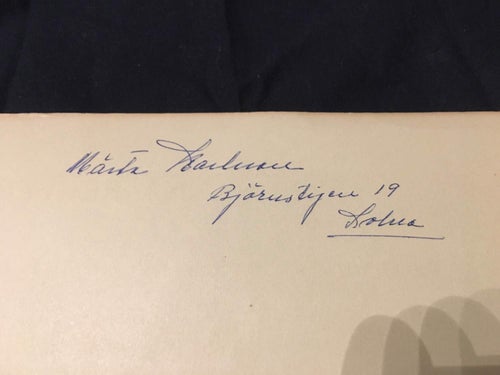 Märta Karlsson
Björnstigen 19
Solna